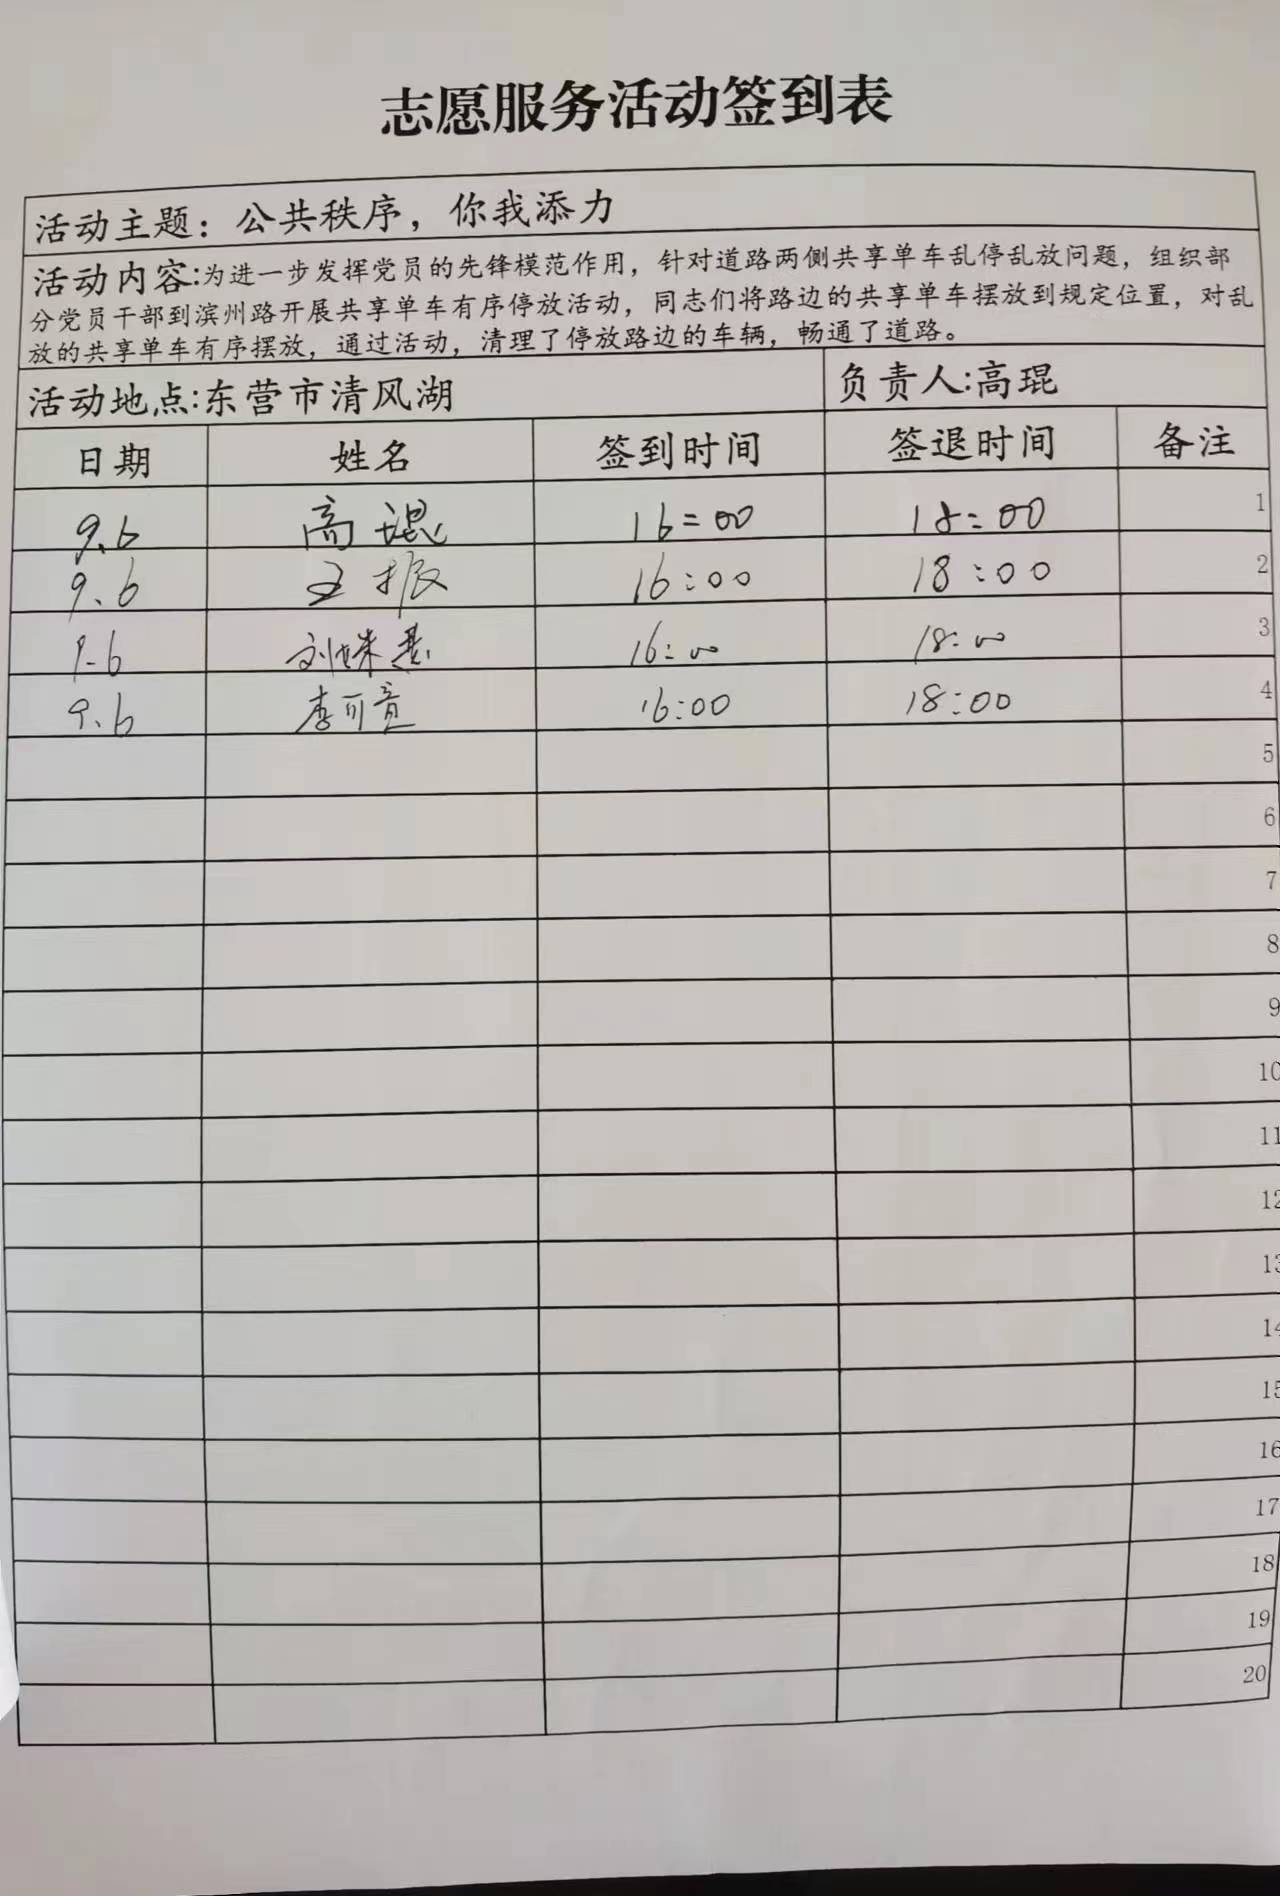 志愿服务活动签到表
活动主题：公共秩序，你我添力
活动内容:为进一步发挥党员的先锋模范作用，针对道路两侧共享单车乱停乱放问题，组织部
分党员干部到滨州路开展共享单车有序停放活动，同志们将路边的共享单车摆放到规定位置，对乱
放的共享单车有序摆放，通过活动，清理了停放路边的车辆，畅通了道路。
活动地点:东营市清风湖 负责人:高琨
日期 姓名 签到时间 签退时间 备注
9.6 高琨 16:00 18:00 1
9.6 王振 16:00 18:00 2
9.6 刘 16:00 18:00 3
9.6 李可 16:00 18:00 4
5
6
7
8
9
10
11
12
13
14
15
16
17
18
19
20